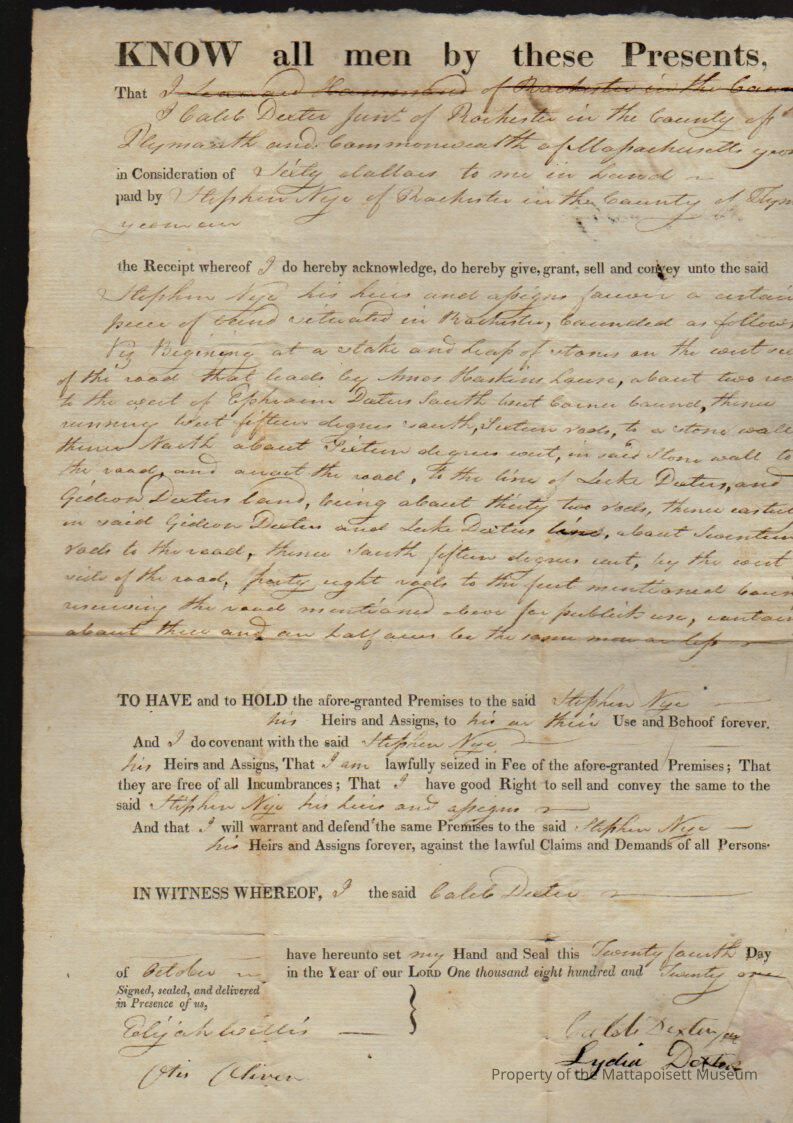 KNOW all men by these Presents,
That I Leonard Hammond of Rochester in the Coun
I Caleb Dexter Junr. of Rochester in the County of
Plymouth and Commonwealth of Massachusetts yeo
in Consideration of Sixty dollars to me in hand
paid by Stephen Nye of Rochester in the County of Plym
yeoman
the Receipt whereof I do hereby acknowledge, do hereby give, grant, sell and convey unto the said
Stephen Nye his heirs and assigns forever a certain
piece of land situated in Rochester, bounded as follows
Viz Begining at a stake and heap of stones on the west si
of the road that leads by Amos Haskins house, about two ro
to the west of Ephraim Dexters South west Corner bound, thence
running west fifteen degrees south, Sixteen rods, to a stone wall
thence North about Fifteen degrees west, in said Stone wall to
the road, and across the road, to the line of Luke Dexters, and
Gideon Dexters land, being about thirty two rods, thence easter
in said Gideon Dexters and Luke Dexters line, about Seventeen
rods to the road, thence South fifteen degrees east, by the west
side of the road, forty eight rods to the first mentioned boun
reserving the road mentioned above for publick use, contain
about three and an half acres be the same more or less
TO HAVE and to HOLD the afore-granted Premises to the said Stephen Nye
his Heirs and Assigns, to his or their Use and Behoof forever.
And I do covenant with the said Stephen Nye
his Heirs and Assigns, That I am lawfully seized in Fee of the afore-granted Premises; That
they are free of all Incumbrances; That I have good Right to sell and convey the same to the
said Stephen Nye his heirs and assigns
And that I will warrant and defend the same Premises to the said Stephen Nye
his Heirs and Assigns forever, against the lawful Claims and Demands of all Persons.
IN WITNESS WHEREOF, I the said Caleb Dexter
have hereunto set my Hand and Seal this Twenty fourth Day
of October in the Year of our LORD One thousand eight hundred and Twenty one
Signed, sealed, and delivered
in Presence of us,
Elijah Willis
Caleb Dexter jr
Otis Oliver
Lydia Dexter
Property of the Mattapoisett Museum